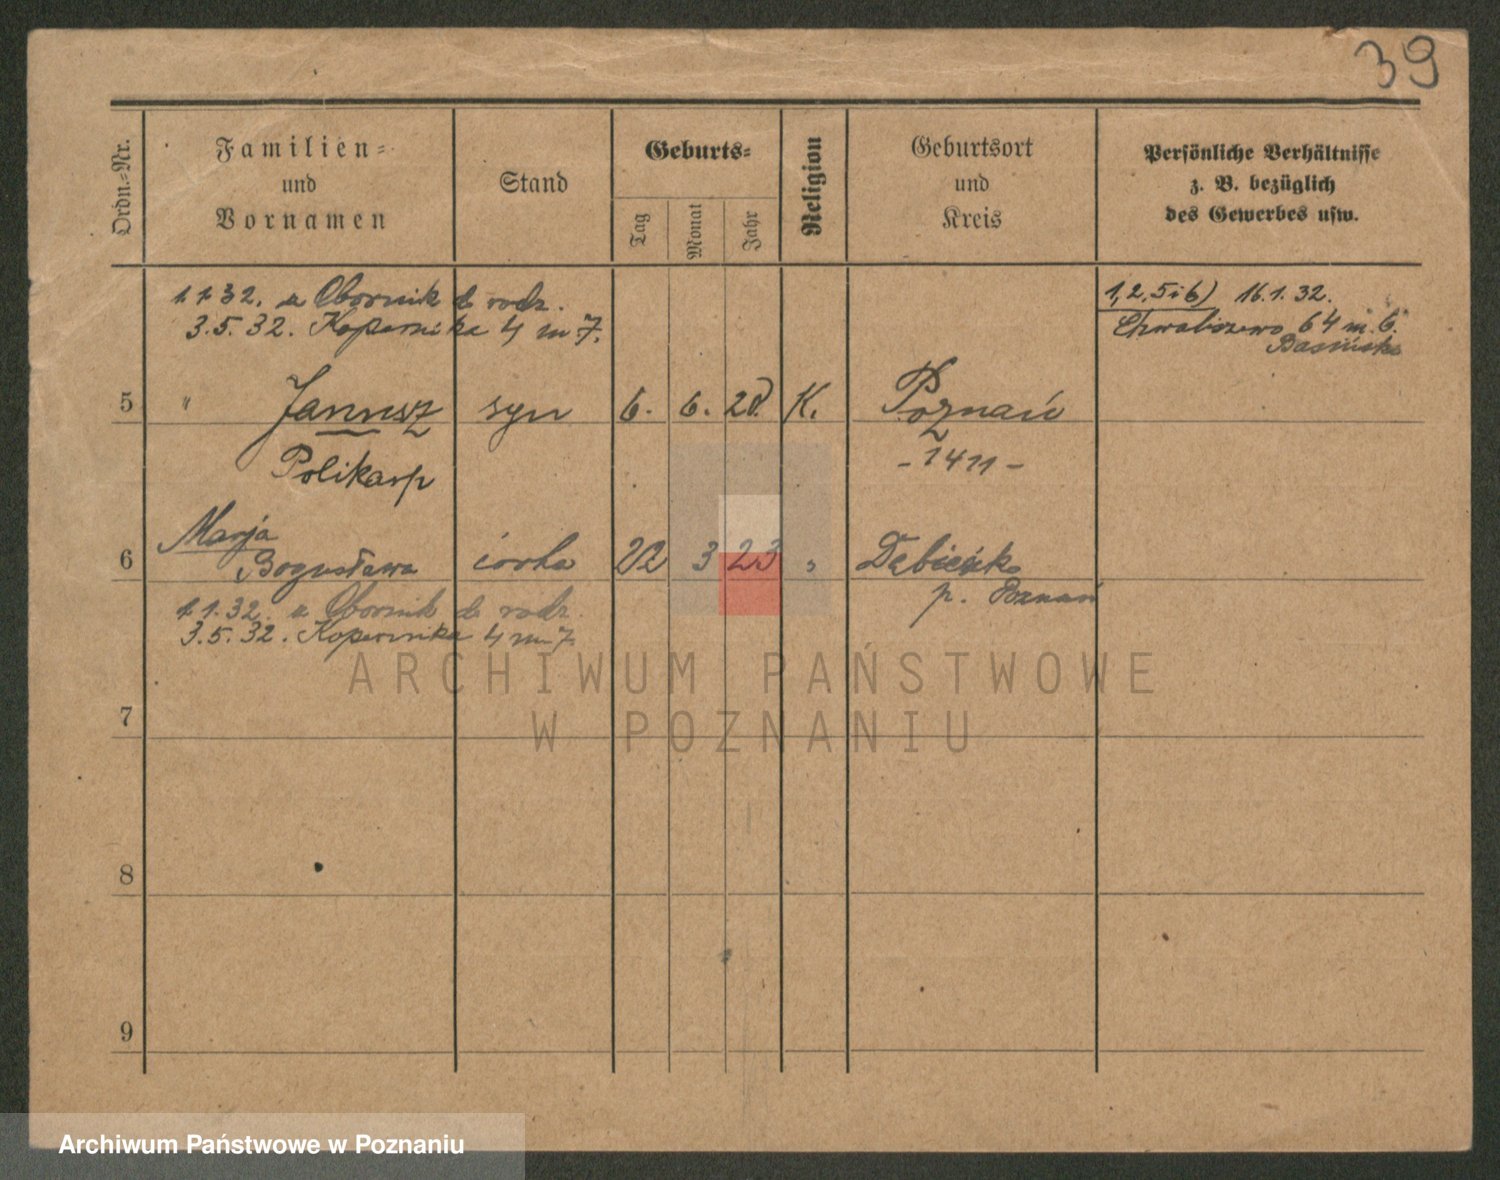 39
Ordn.-Nr.
Familien-
und
Vornamen
Stand
Geburts-
Tag
Monat
Jahr
Religion
Geburtsort
und
Kreis
Persönliche Verhältnisse
z. B. bezüglich
des Gewerbes usw.
1.1.32. z Obornik do rodz.
3.5.32. Kopernika 4 m 7.
1, 2, 5 i 6) 16.1.32.
Chwaliszewo 64 m. 6.
5 " Janusz syn 6. 6. 20. K. Poznań
Polikarp - 1411 -
Marja
6 Bogusława córka 22 3 23 "
p. Poznań
1.1.32. z Obornik do rodz.
3.5.32. Kopernika 4 m 7.
ARCHIWUM PAŃSTWOWE
W POZNANIU
7
8
9
Archiwum Państwowe w Poznaniu